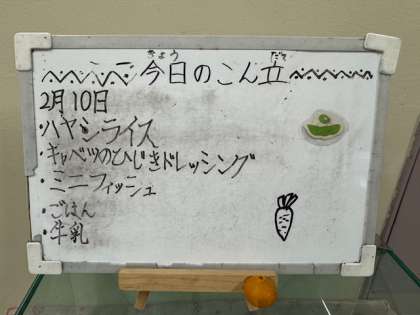 今日のこん立
きょう だて
2月10日
・ハヤシライス
・キャベツのひじきドレッシング
・ミニフィッシュ
・ごはん
・牛乳